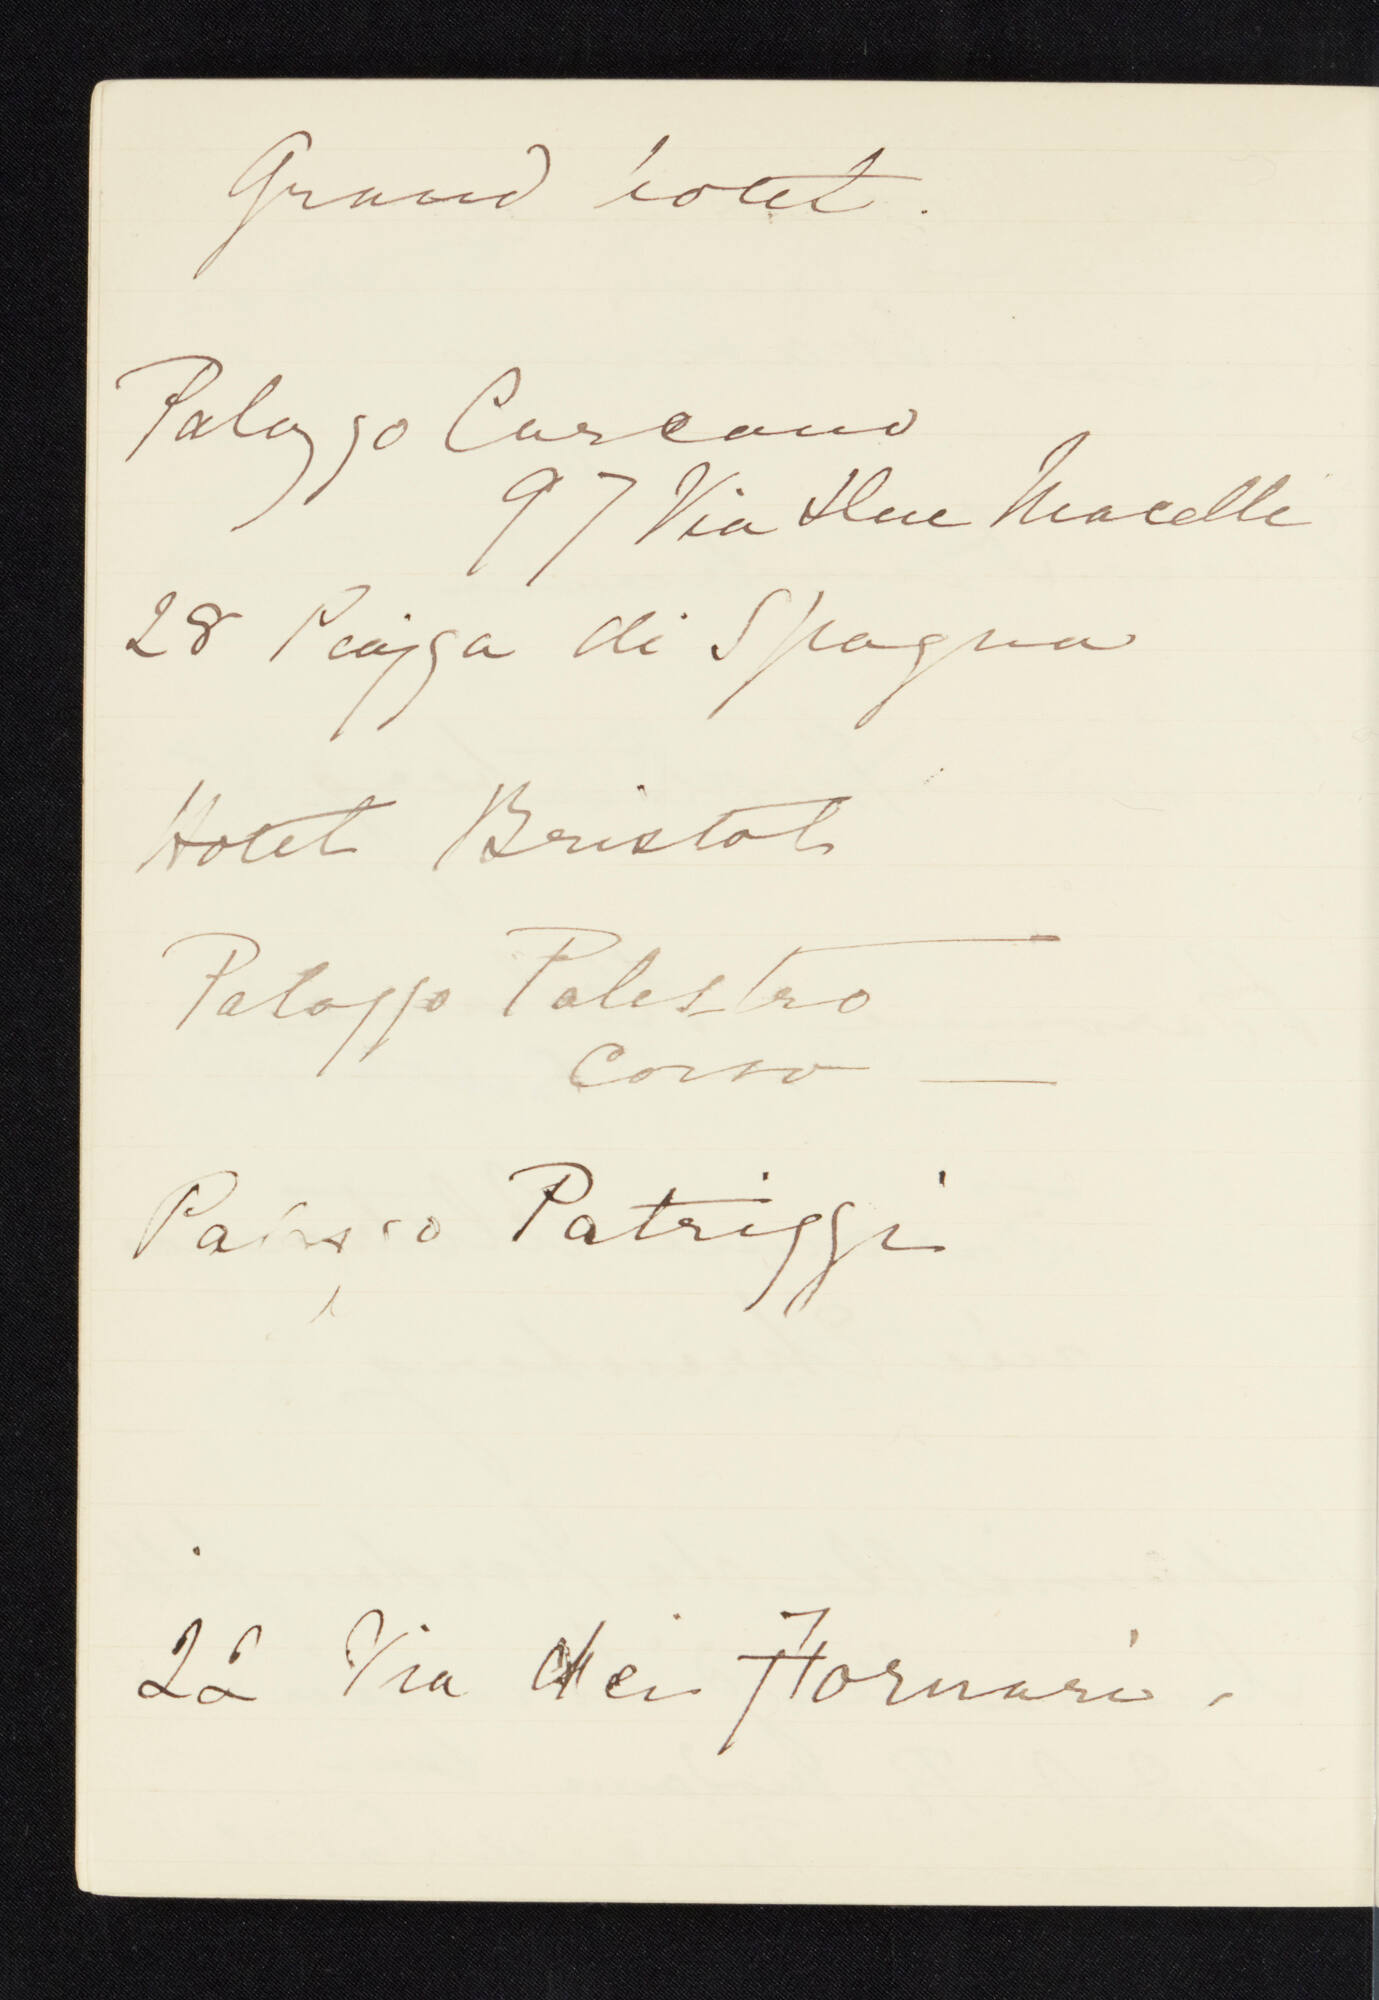 Grand hotel.
Palazzo Carcano
97 Via due Macelli
28 Piazza di Spagna
Hotel Bristol
Palazzo Palestro
Corso —
Palazzo Patrizzi
22 Via dei Fornari.